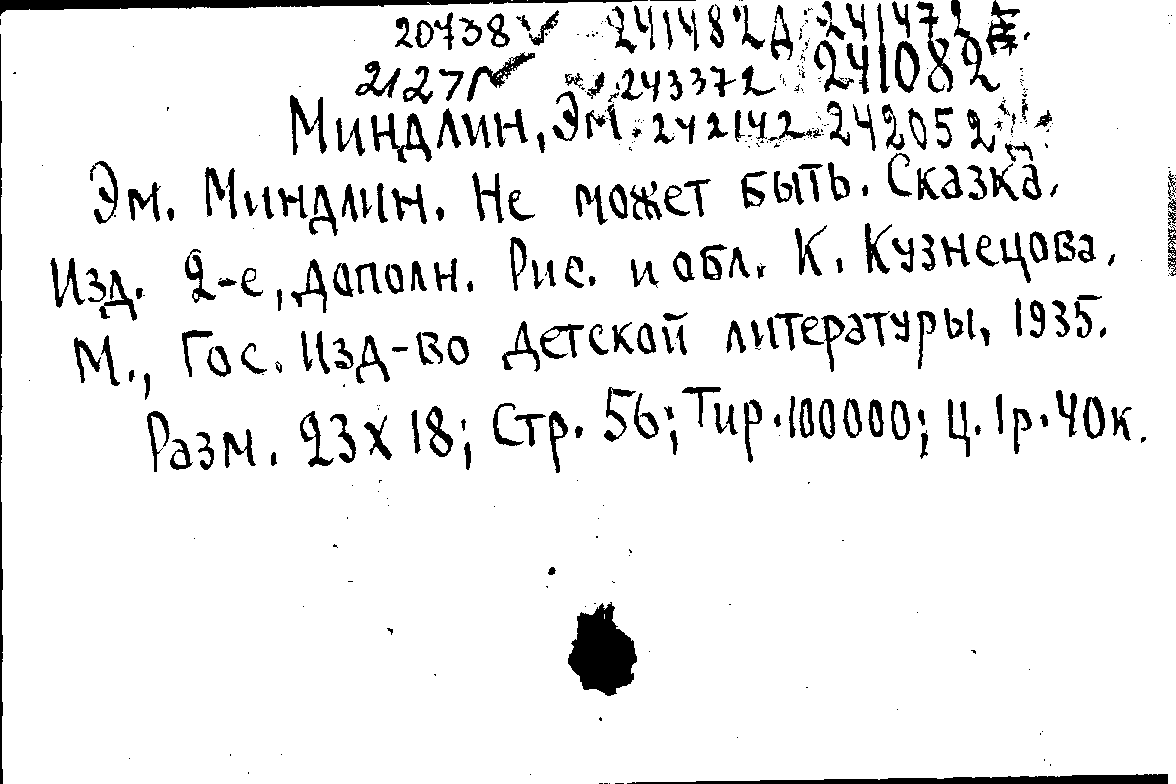 20738 241482 Д 241472
2127 243372 241082
Миндлин, Эм. 242142 242052
Эм. Миндлин. Не может быть. Сказка.
Изд. 2-е, дополн. Рис. и обл. К. Кузнецова.
М., Гос. Изд-во детской литературы, 1935.
Разм. 23х18; Стр. 56; Тир. 100000; ц. 1р. 40к.